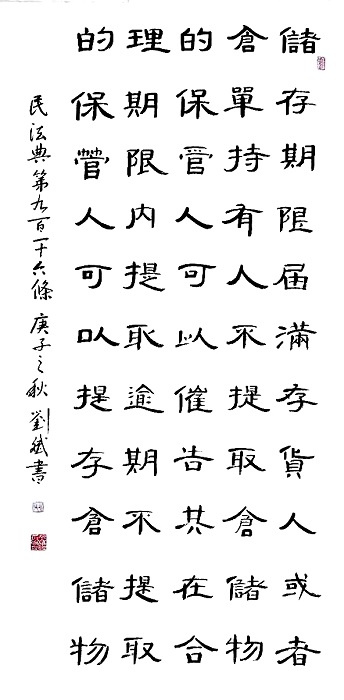 儲存期限届滿存貨人或者
倉單持有人不提取倉儲物
的保管人可以催告其在合
理期限内提取逾期不提取
的保管人可以提存倉儲物
民法典第九百一十六條 庚子之秋 劉斌書